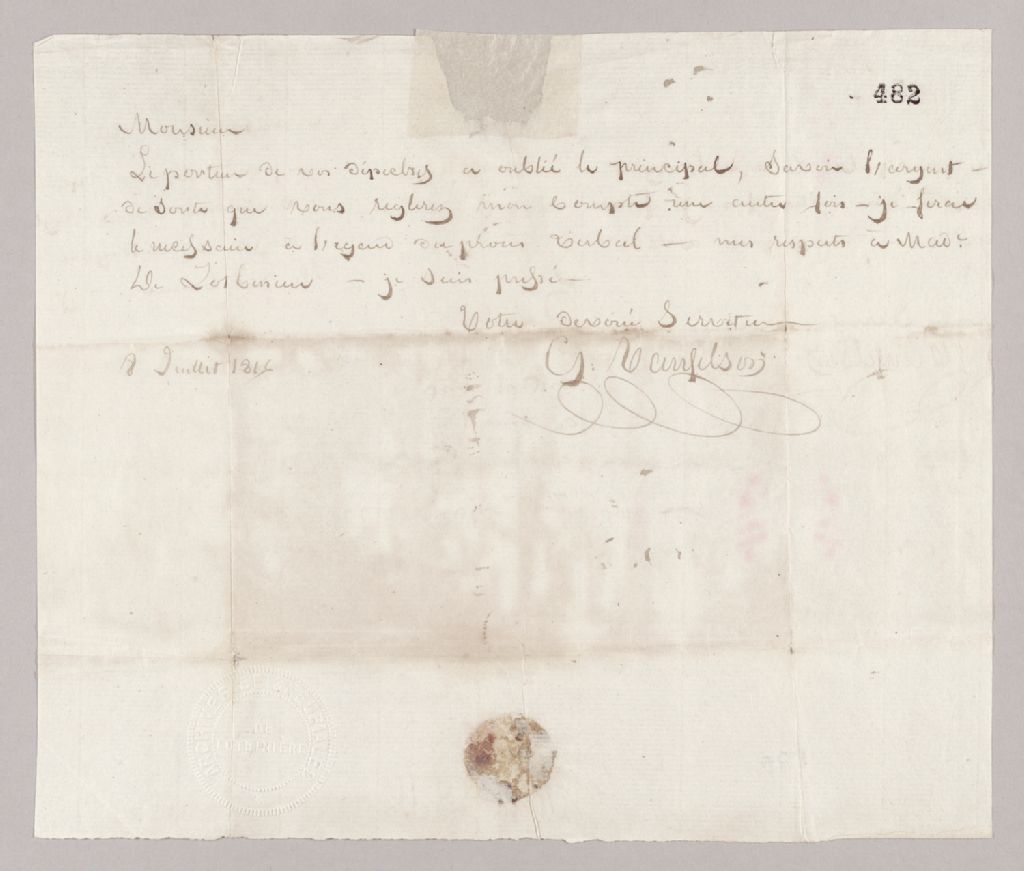 482
Monsieur
Le porteur de vos dépeches a oublié le principal, Savoir l'argent –
de sorte que vous reglerez mon compte une autre fois – je ferai
le necessaire à l'egard du procès verbal – mes respects à Mad.e
De Lotbiniere – je suis pressé –
Votre devoué Serviteur
G. Vanfelson
8 Juillet 181
DE
LOTBINIERE